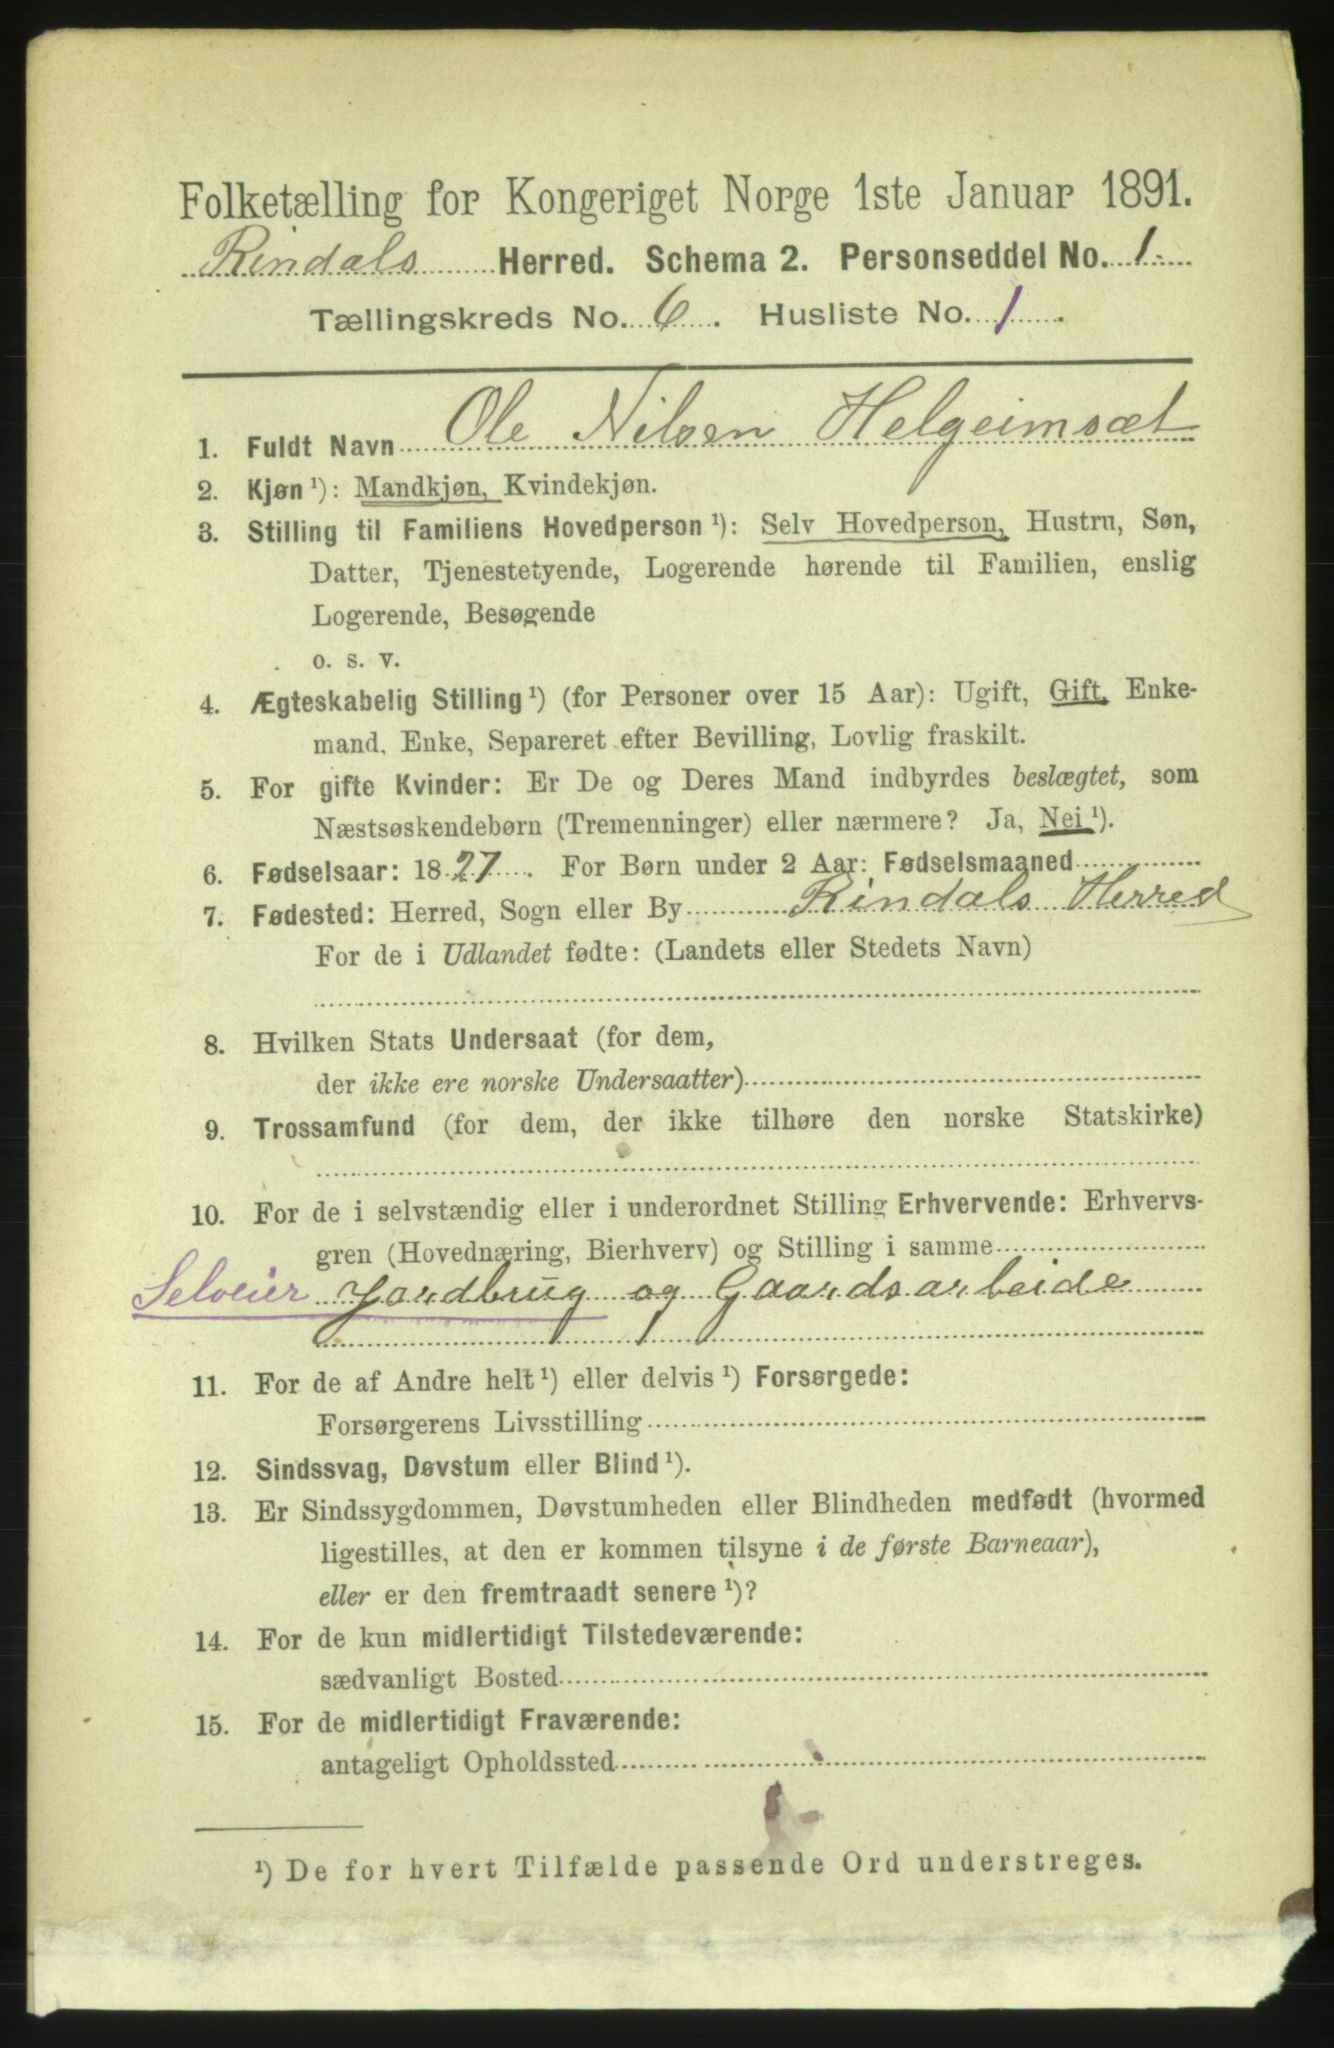 Folketælling for Kongeriget Norge 1ste Januar 1891.
Rindals Herred. Schema 2. Personseddel No. 1.
Tællingskreds No. 6. Husliste No. 1.
1. Fuldt Navn Ole Nilsen Helgeimsæt
2. Kjøn ¹): Mandkjøn, Kvindekjøn.
3. Stilling til Familiens Hovedperson ¹): Selv Hovedperson, Hustru, Søn,
Datter, Tjenestetyende, Logerende hørende til Familien, enslig
Logerende, Besøgende
o. s. v.
4. Ægteskabelig Stilling ¹) (for Personer over 15 Aar): Ugift, Gift, Enke-
mand, Enke, Separeret efter Bevilling, Lovlig fraskilt.
5. For gifte Kvinder: Er De og Deres Mand indbyrdes beslægtet, som
Næstsøskendebørn (Tremenninger) eller nærmere? Ja, Nei ¹).
6. Fødselsaar: 1827. For Børn under 2 Aar: Fødselsmaaned
7. Fødested: Herred, Sogn eller By Rindals Herred
For de i Udlandet fødte: (Landets eller Stedets Navn)
8. Hvilken Stats Undersaat (for dem,
der ikke ere norske Undersaatter)
9. Trossamfund (for dem, der ikke tilhøre den norske Statskirke)
10. For de i selvstændig eller i underordnet Stilling Erhvervende: Erhvervs-
gren (Hovednæring, Bierhverv) og Stilling i samme
Selveier Jordbrug og Gaardsarbeide
11. For de af Andre helt ¹) eller delvis ¹) Forsørgede:
Forsørgerens Livsstilling
12. Sindssvag, Døvstum eller Blind ¹).
13. Er Sindssygdommen, Døvstumheden eller Blindheden medfødt (hvormed
ligestilles, at den er kommen tilsyne i de første Barneaar),
eller er den fremtraadt senere ¹)?
14. For de kun midlertidigt Tilstedeværende:
sædvanligt Bosted
15. For de midlertidigt Fraværende:
antageligt Opholdssted
¹) De for hvert Tilfælde passende Ord understreges.